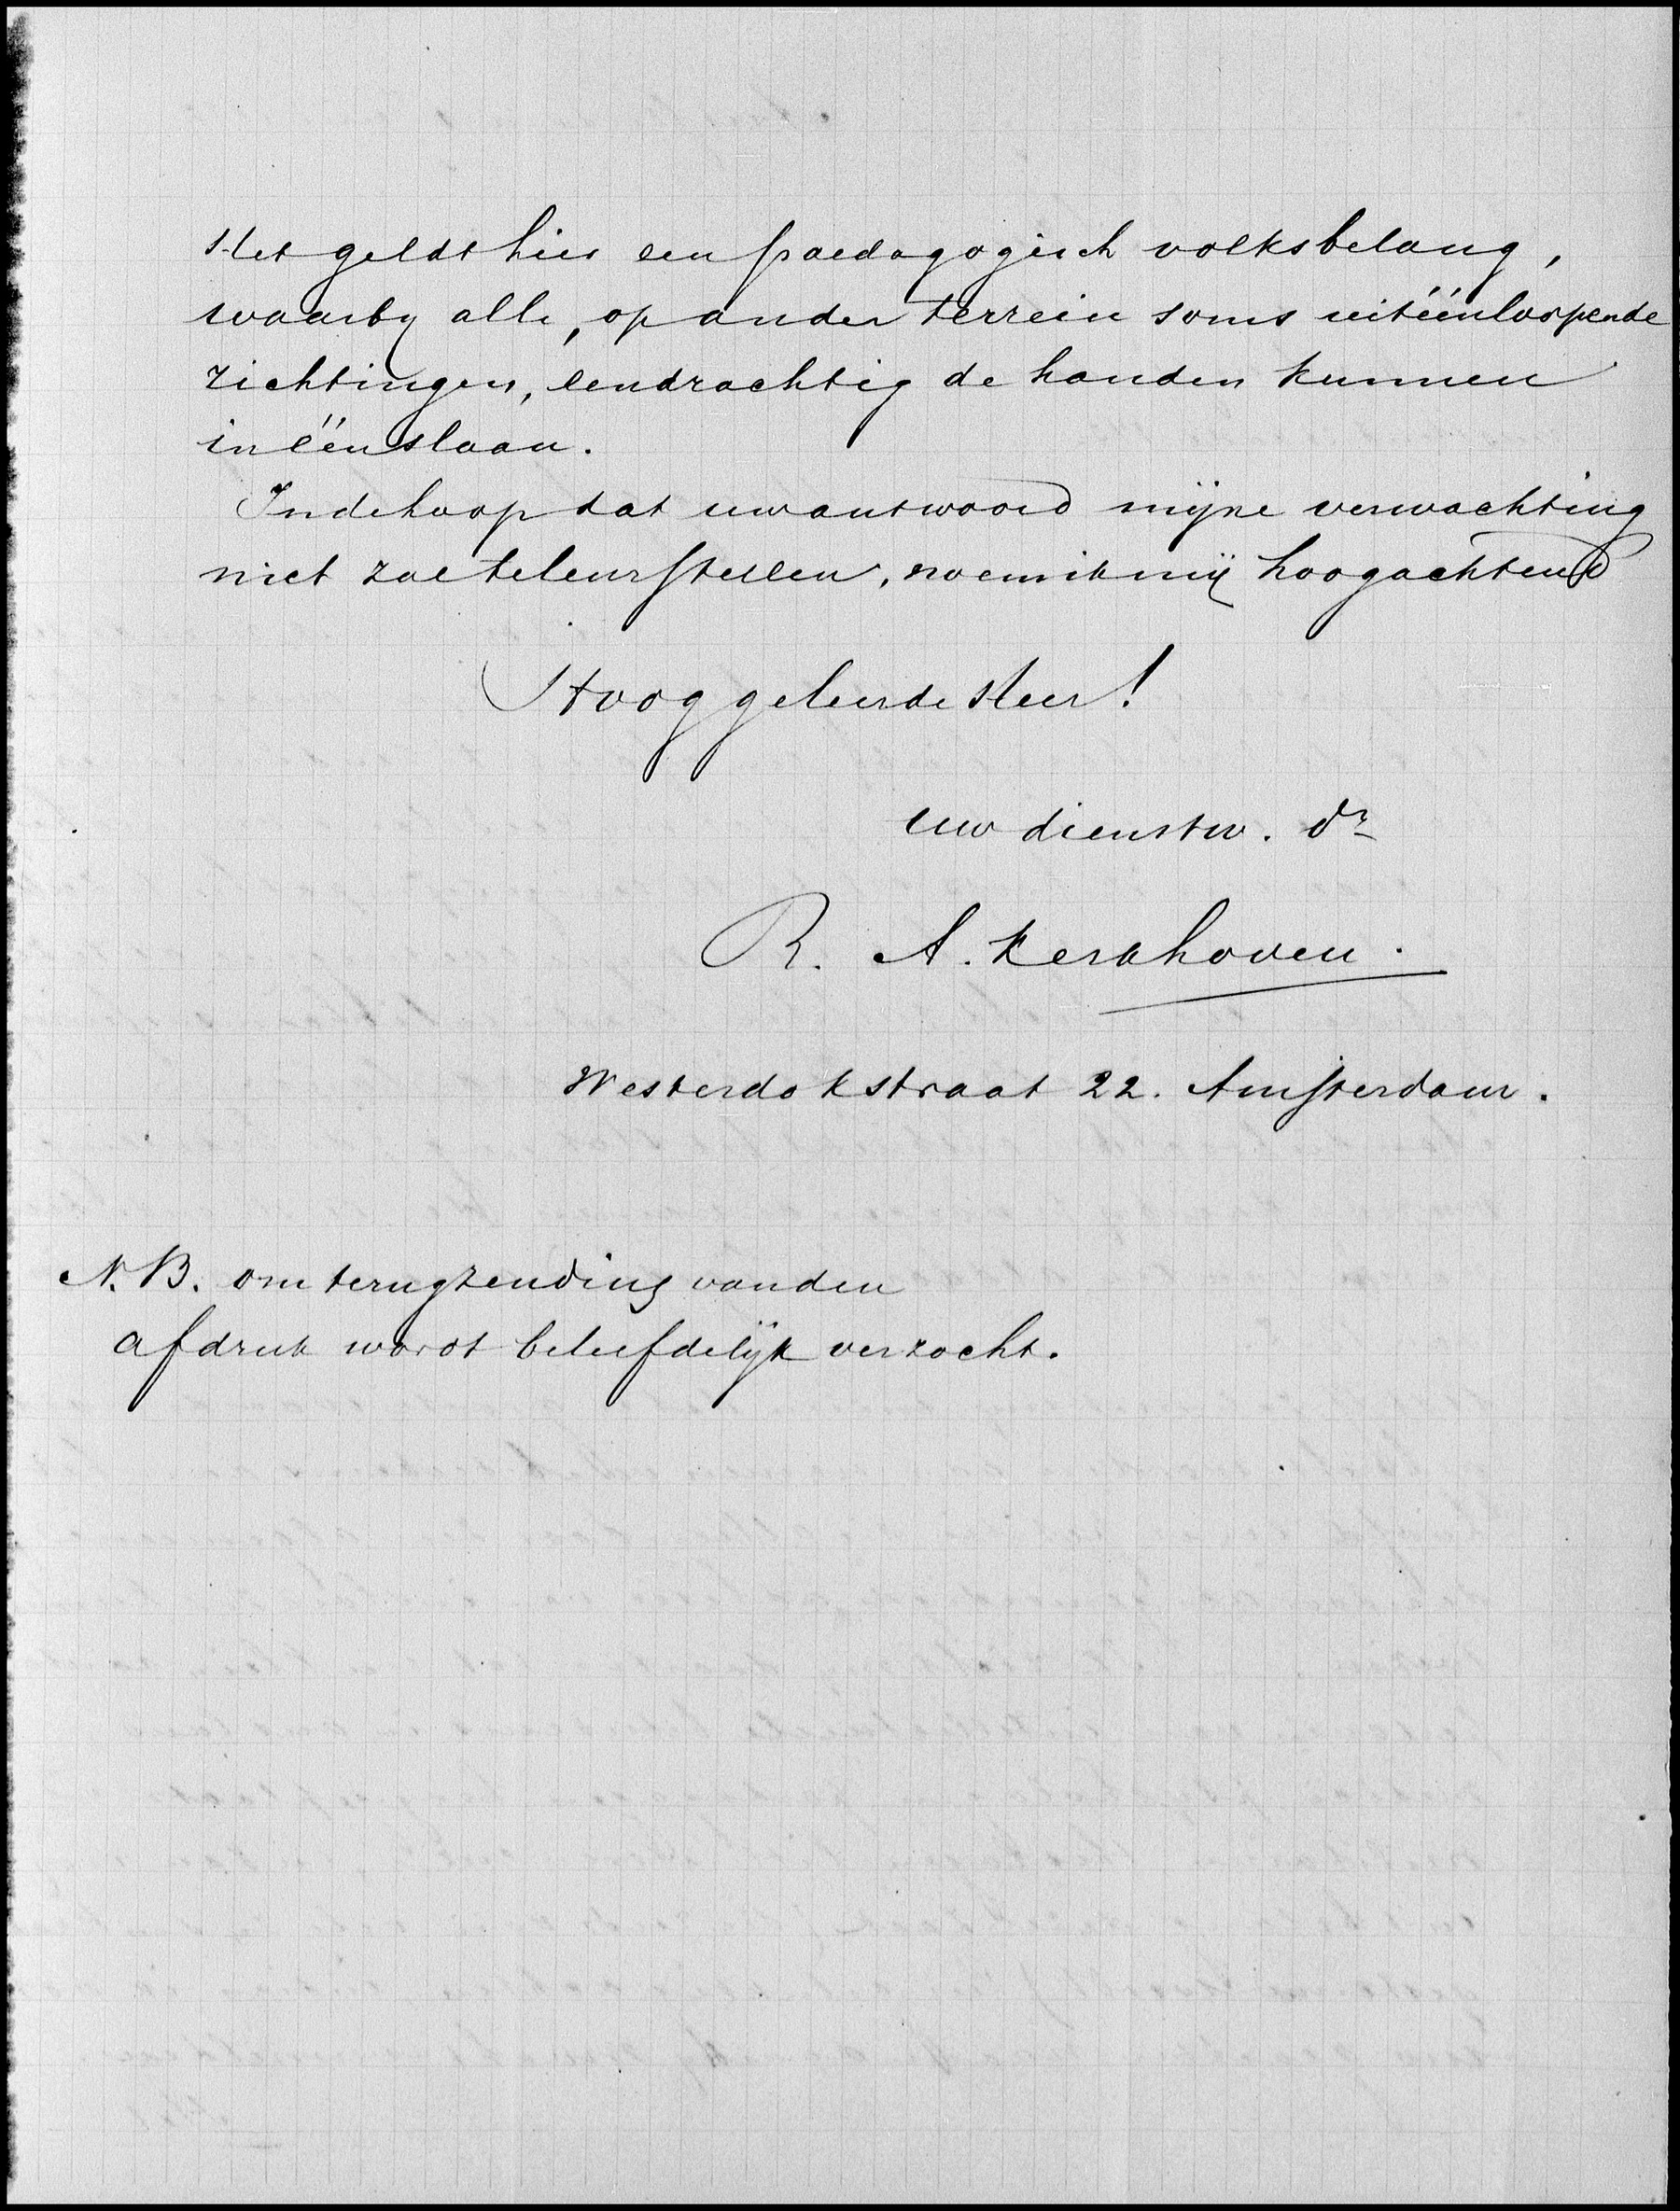 Het geldt hier een paedagogisch volksbelang,
waarby alle, op ander terrein soms uitéénloopende
richtingen, eendrachtig de handen kunnen
inéénslaan.
In de hoop dat uw antwoord mijne verwachting
niet zal teleurstellen, noem ik mij hoogachtend
Hooggeleerde Heer!
uw dienstw. dr
R. A. Kerkhoven.
Westerdokstraat 22. Amsterdam.
N.B. om terugzending van den
afdruk wordt beleefdelijk verzocht.